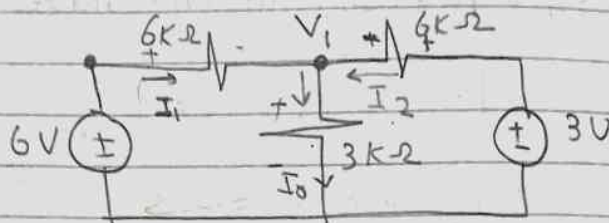 6KΩ V₁ 6KΩ
+ - - +
I₁ I₂
6V ± + 3KΩ ± 3V
- I₀